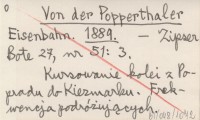 Von der Popperthaler
Eisenbahn. 1889. — Zipser
Bote 27, nr 51: 3.
Kursowanie kolei z Po-
pradu do Kiezmarku. Frek-
wencja podróżujących.